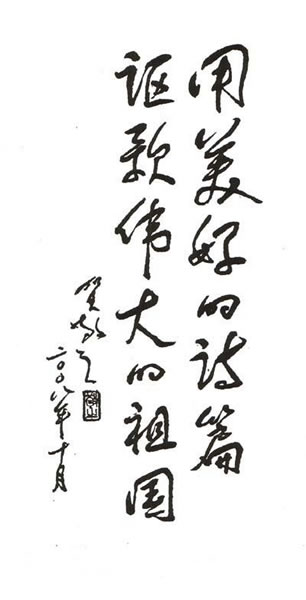 用美好的诗篇
讴歌伟大的祖国
贺敬之
二〇〇八年十月